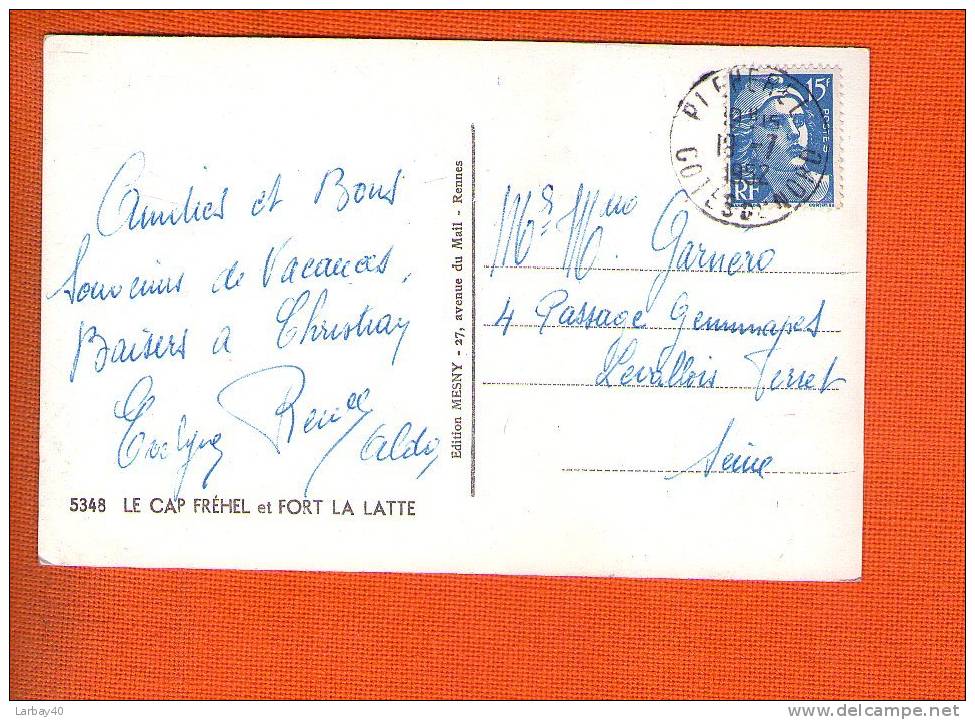 Amitiés et Bons
Souvenirs de Vacances,
Baisers à Christian
Evelyne Renée
Aldo,
5348 LE CAP FRÉHEL et FORT LA LATTE
Edition MESNY - 27, avenue du Mail - Rennes
15F
POSTES
RF
PLEHEREL
18-7
1952
COTES DU NORD
Mr & Mme Garnero
4 Passage Gemmapes
Levallois Perret
Seine
Larbay40
www.delcampe.net